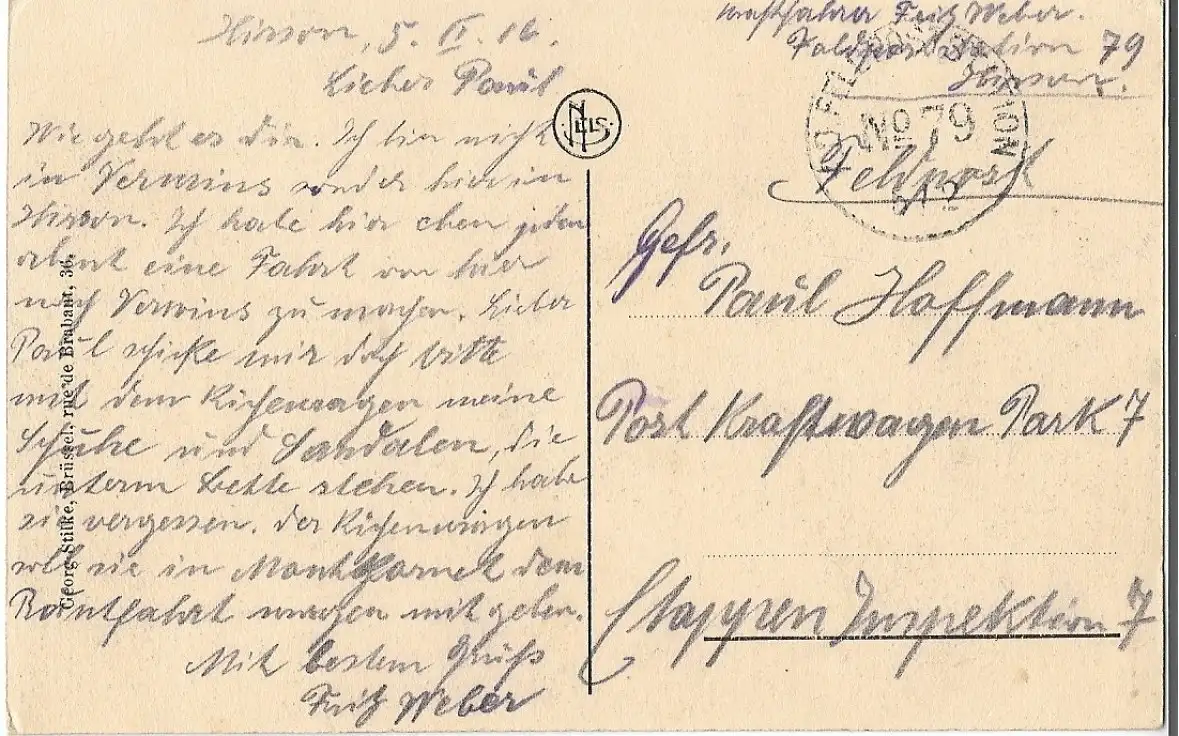 Hirson, 5. II. 16.
Lieber Paul
Wie geht es dir. Ich bin nicht
in Vervins sonder hier in
Hirson. Ich habe hier eben jeden
abent eine Fahrt von hier
nach Vervins zu machen. Lieber
Paul schicke mir doch bitte
mit dem Küchenwagen meine
Schuhe und Sandalen, die
unterm Bette stehen. Ich habe
sie vergessen. Der Küchenwagen
soll sie in Montkornet dem
Rontfahrt wagen mit geben.
Mit bestem Gruß
Fritz Weber
Georg Stilke, Brüssel, rue de Brabant, 36.
NELS
Kraftfahrer Fritz Weber.
Feldpoststation 79
Hirson.
No 79
Feldpost
Gefr.
Paul Hoffmann
Post Kraftwagen Park 7
Etappen Inspektion 7